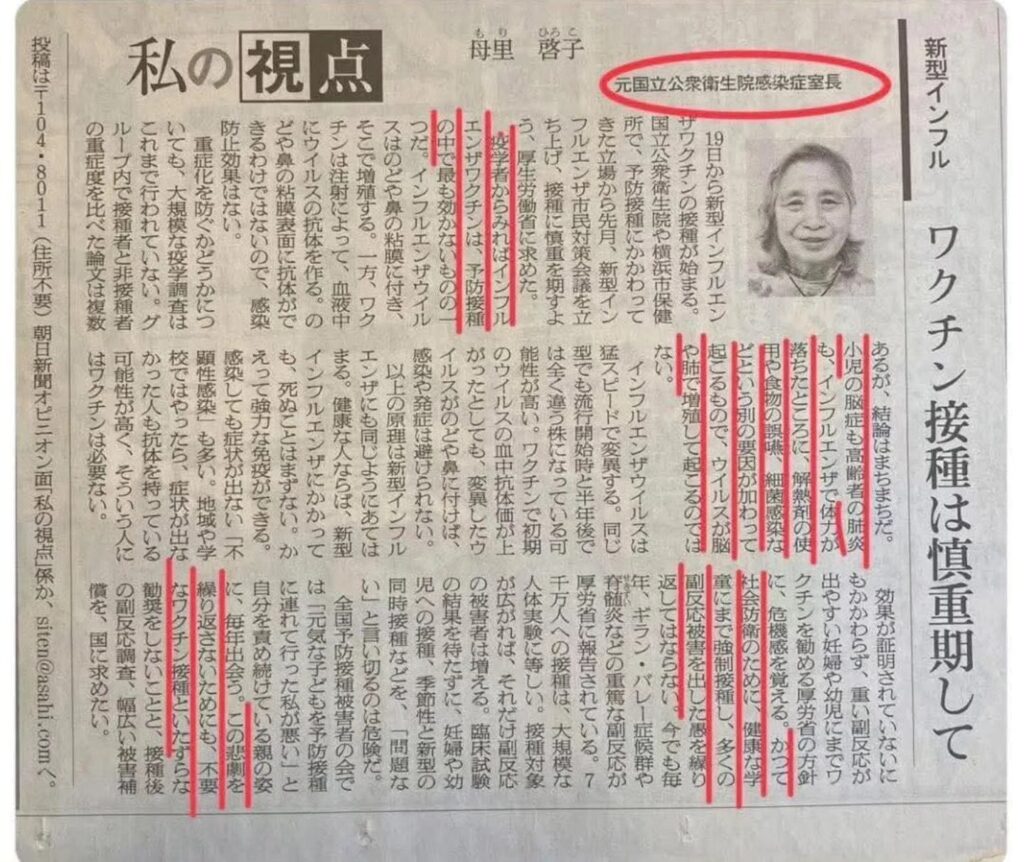 新型インフル
ワクチン接種は慎重期して
元国立公衆衛生院感染症室長
もり ひろこ
母里 啓子
私の視点
19日から新型インフルエン
ザワクチンの接種が始まる。
国立公衆衛生院や横浜市保健
所で、予防接種にかかわって
きた立場から先月、新型イン
フルエンザ市民対策会議を立
ち上げ、接種に慎重を期すよ
う、厚生労働省に求めた。
疫学者からみればインフル
エンザワクチンは、予防接種
の中で最も効かないものの一
つだ。インフルエンザウイル
スはのどや鼻の粘膜に付き、
そこで増殖する。一方、ワク
チンは注射によって、血液中
にウイルスの抗体を作る。の
どや鼻の粘膜表面に抗体がで
きるわけではないので、感染
防止効果はない。
重症化を防ぐかどうかにつ
いても、大規模な疫学調査は
これまで行われていない。グ
ループ内で接種者と非接種者
の重症度を比べた論文は複数
あるが、結論はまちまちだ。
小児の脳症も高齢者の肺炎
も、インフルエンザで体力が
落ちたところに、解熱剤の使
用や食物の誤嚥、細菌感染な
どという別の要因が加わって
起こるもので、ウイルスが脳
や肺で増殖して起こるのでは
ない。
インフルエンザウイルスは
猛スピードで変異する。同じ
型でも流行開始時と半年後で
は全く違う株になっている可
能性が高い。ワクチンで初期
のウイルスの血中抗体価が上
がったとしても、変異したウ
イルスがのどや鼻に付けば、
感染や発症は避けられない。
以上の原理は新型インフル
エンザにも同じようにあては
まる。健康な人ならば、新型
インフルエンザにかかって
も、死ぬことはまずない。か
えって強力な免疫ができる。
感染しても症状が出ない「不
顕性感染」も多い。地域や学
校ではやったら、症状が出な
かった人も抗体を持っている
可能性が高く、そういう人に
はワクチンは必要ない。
効果が証明されていないに
もかかわらず、重い副反応が
出やすい妊婦や幼児にまでワ
クチンを勧める厚労省の方針
に、危機感を覚える。かつて
社会防衛のために、健康な学
童にまで強制接種し、多くの
副反応被害を出した愚を繰り
返してはならない。今でも毎
年、ギラン・バレー症候群や
せきずいえん
脊髄炎などの重篤な副反応が
厚労省に報告されている。7
千万人への接種は、大規模な
人体実験に等しい。接種対象
が広がれば、それだけ副反応
の被害者は増える。臨床試験
の結果を待たずに、妊婦や幼
児への接種、季節性と新型の
同時接種などを、「問題な
い」と言い切るのは危険だ。
全国予防接種被害者の会で
は「元気な子どもを予防接種
に連れて行った私が悪い」と
自分を責め続けている親の姿
に、毎年出会う。この悲劇を
繰り返さないためにも、不要
なワクチン接種といたずらな
勧奨をしないことと、接種後
の副反応調査、幅広い被害補
償を、国に求めたい。
投稿は〒104・8011（住所不要）朝日新聞オピニオン面「私の視点」係か、siten@asahi.comへ。